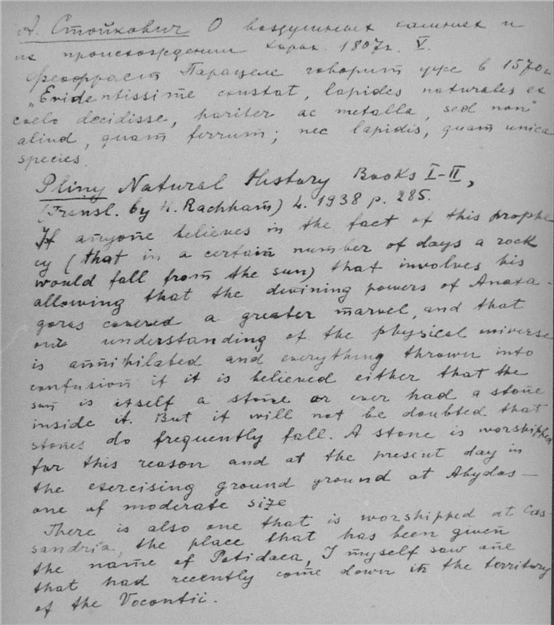 А. Стойкович О воздушных камнях и
их происхождении Харьк. 1807г. V.
Парацельс говорит уже в 1570г.
"Evidentissime constat, lapides naturales ex
coelo decidisse, pariter ac metalla, sed non
aliud, quam ferrum; nec lapidis, quam unica
species.
Pliny Natural History Books I-II,
(Transl. by H. Rachham) L. 1938 p. 285.
If anyone believes in the fact of this prophe
cy (that in a certain number of days a rock
would fall from the sun) that involves his
allowing that the divining powers of Anaxa-
goras covered a greater marvel, and that
our understanding of the physical universe
is annihilated and everything thrown into
confusion if it is believed either that the
sun is itself a stone or ever had a stone
inside it. But it will not be doubted that
stones do frequently fall. A stone is worshipped
for this reason and at the present day in
the exercising ground ground at Abydos —
one of moderate size
There is also one that is worshipped at Cas-
sandria, the place that has been given
the name of Potidaea, I myself saw one
that had recently come down in the territory
of the Vocontii.